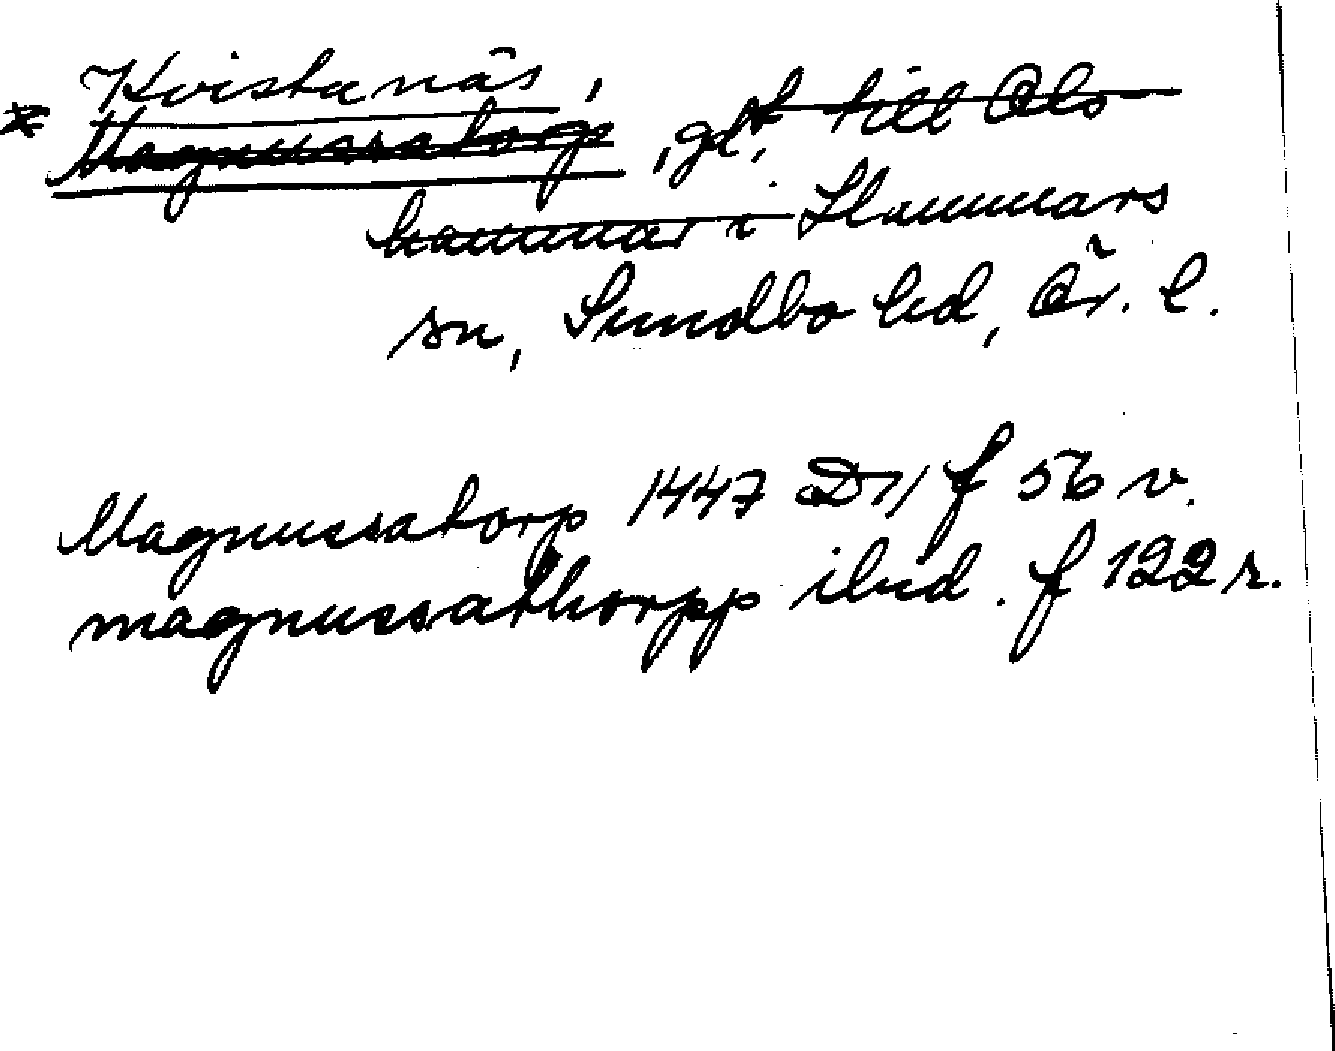 Kvistanäs,
* Magnussatorp, gd, t till Als
hammar i Hammars
sn, Sundbo hd, Ör. l.
Magnussatorp 1447 D 11 f 56 v.
magnussathorpp ibid. f 122 r.